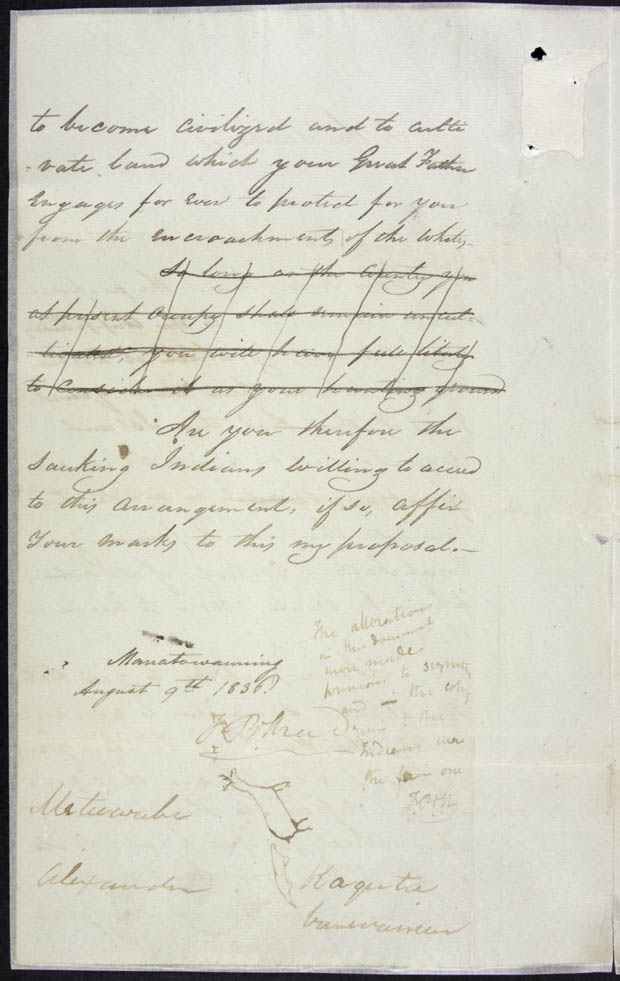 to become civilized and to culti
=vate land which your Great Father
Engages for ever to protect for you
from the encroachments of the Whites.
So long as the Country you
at present occupy shall remain uncul-
tivated, you will have full liberty
to consider it as your hunting ground
Are you therefore the
Sauking Indians willing to accede
to this arrangement, if so, affix
Your marks to this my proposal.—
Manatowanning
August 9th 1836
The alteration
in this document
were made
previous to signing
and the copy
given to the
Indians was
the fair one
FBH
FBHead
Metiewabe
Alexander
Kaquta